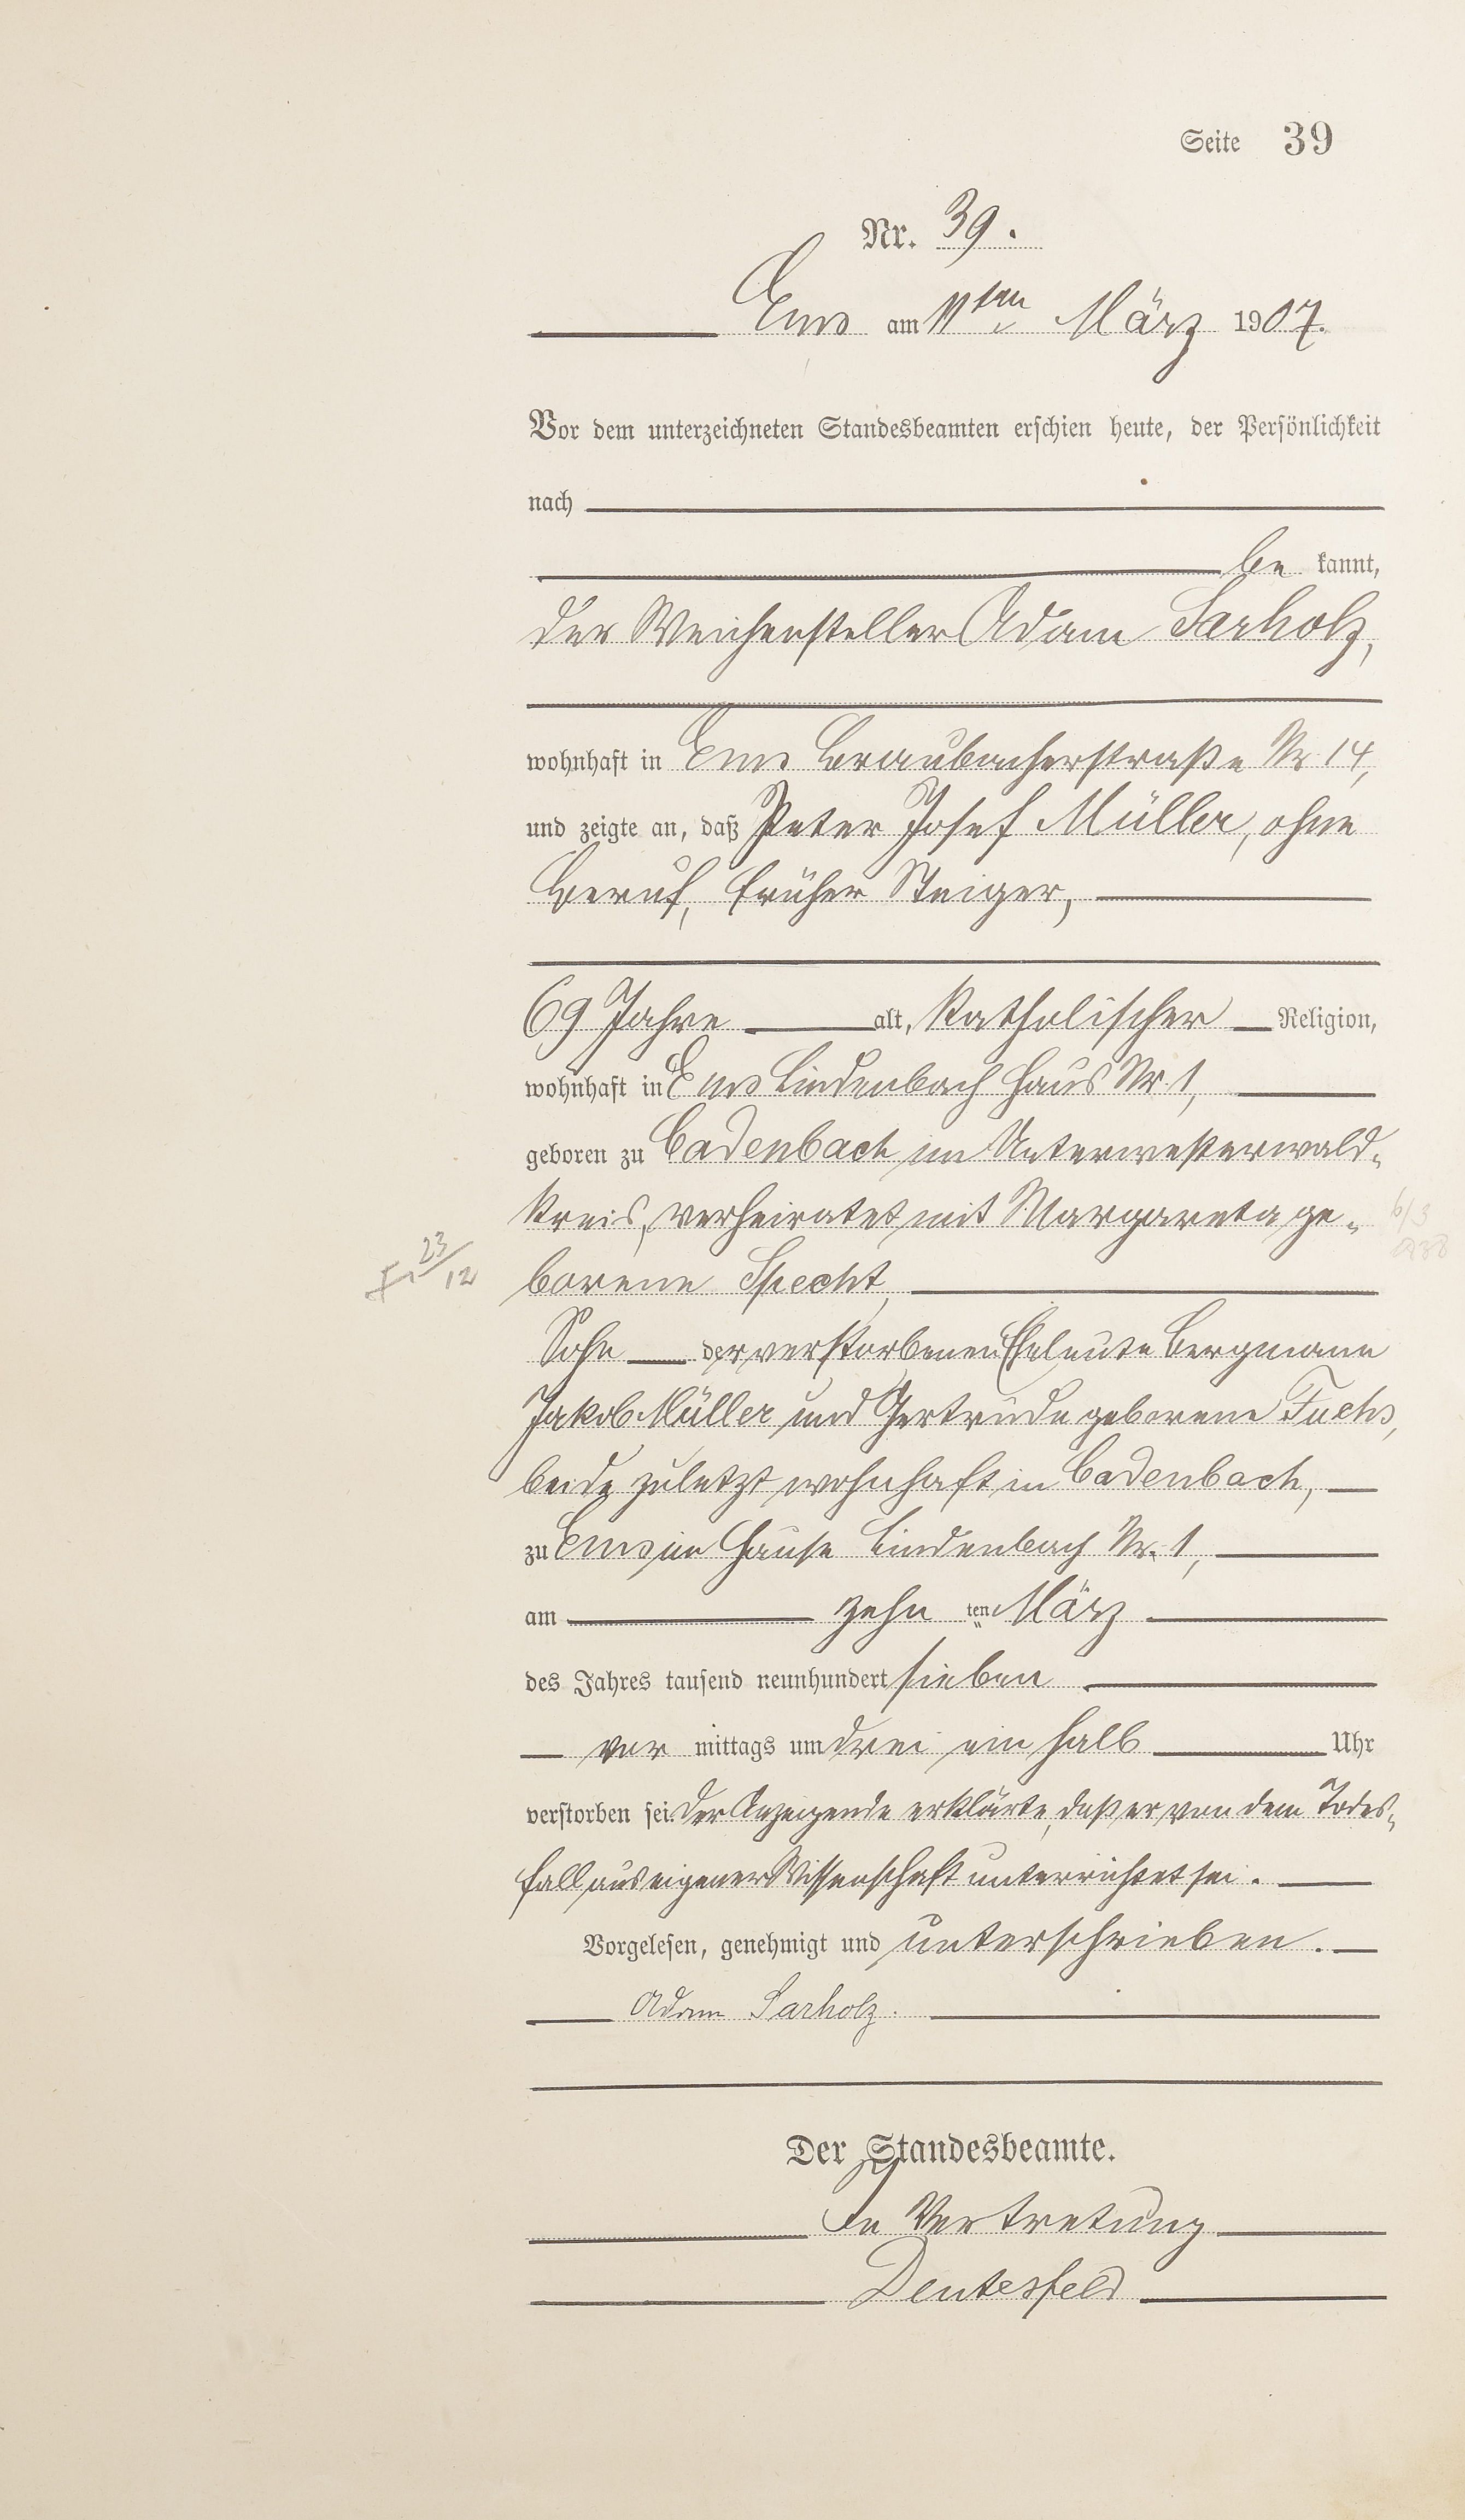 Seite 39
Nr. 39.
Ems am 11ten März 1907.
Vor dem unterzeichneten Standesbeamten erschien heute, der Persönlichkeit
nach
be kannt,
der Weichensteller Adam Sarholz,
wohnhaft in Ems Braubacherstraße Nr 14,
und zeigte an, daß Peter Josef Müller, ohne
Beruf, früher Steiger,
69 Jahre alt, katholischer Religion,
wohnhaft in Ems Lindenbach Haus Nr. 1,
geboren zu Cadenbach im Unterwesterwald-
kreis, verheiratet mit Margareta ge-
borene Specht,
23/12
6/3
Sohn der verstorbenen Eheleute Bergmann
Jakob Müller und Gertrude geborene Fuchs,
beide zuletzt wohnhaft in Cadenbach,
zu Ems im Hause Lindenbach Nr. 1,
am zehn ten März
des Jahres tausend neunhundert sieben
vor mittags um drei ein halb Uhr
verstorben sei. Der Anzeigende erklärte, daß er von dem Todes-
fall aus eigener Wissenschaft unterrichtet sei.
Vorgelesen, genehmigt und unterschrieben.
Adam Sarholz.
Der Standesbeamte.
In Vertretung
Dentesfeld